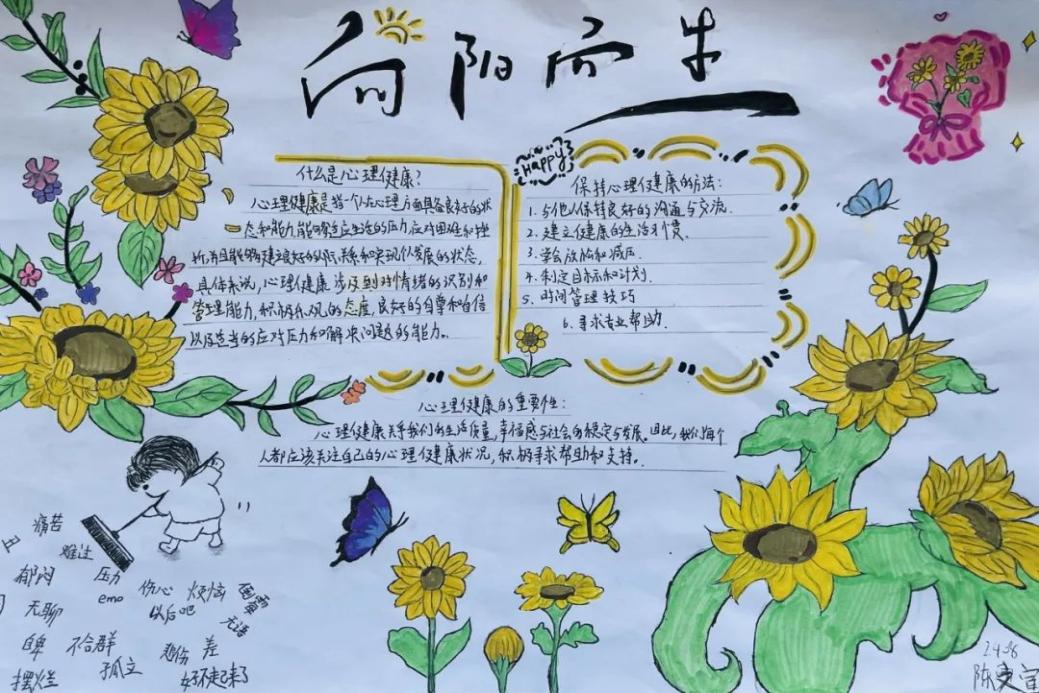 向阳而生
什么是心理健康?
心理健康是指个人在心理方面具备良好的状
态和能力,能够适应生活的压力,应对困难和挫
折,并且能够建设良好的人际关系和实现个人发展的状态,
具体来说,心理健康涉及到对情绪的识别和
管理能力,积极乐观的态度,良好的自尊和自信
以及适当的应对压力和解决问题的能力。
Happy
保持心理健康的方法:
1. 与他人保持良好的沟通与交流.
2. 建立健康的生活习惯.
3. 学会放松和减压.
4. 制定目标和计划.
5. 时间管理技巧
6. 寻求专业帮助.
心理健康的重要性:
心理健康关乎我们的生活质量,幸福感与社会的稳定与发展。因此,我们每个
人都应该关注自己的心理健康状况,积极寻求帮助和支持.
痛苦
丑
难过
郁闷
压力
emo
伤心
烦恼
倒霉
无聊
以后吧
无语
不合群
悲伤
差
摆烂
孤立
好不起来了